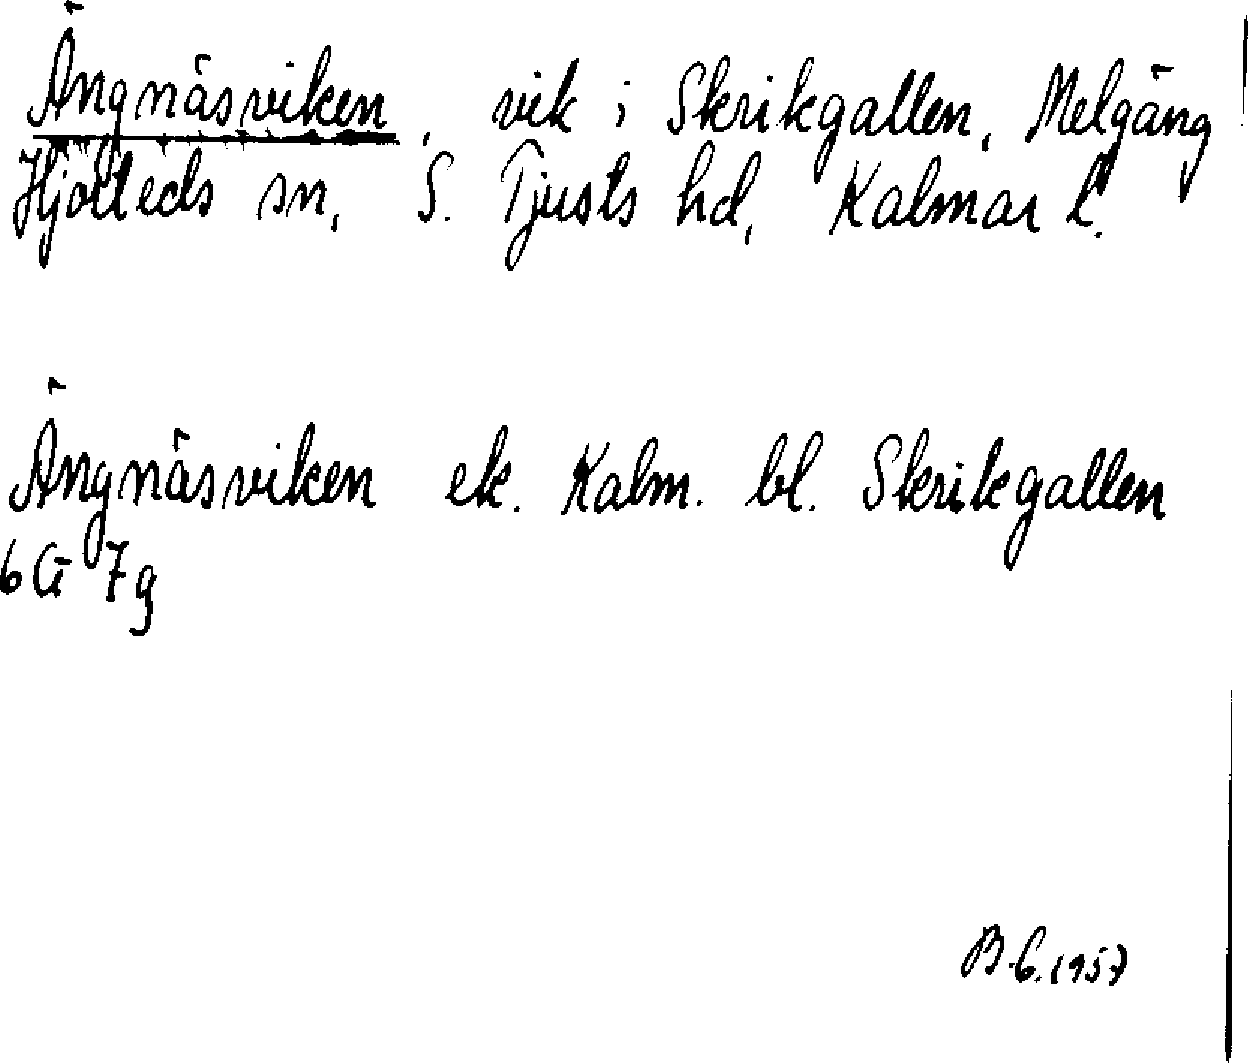 Ängnäsviken, vik i Skrikgallen, Melgäng
Hjorteds sn, S. Tjusts hd, Kalmar l.
Ängnäsviken ek. Kalm. bl. Skrikgallen
6 G 7g
B.G. 1957